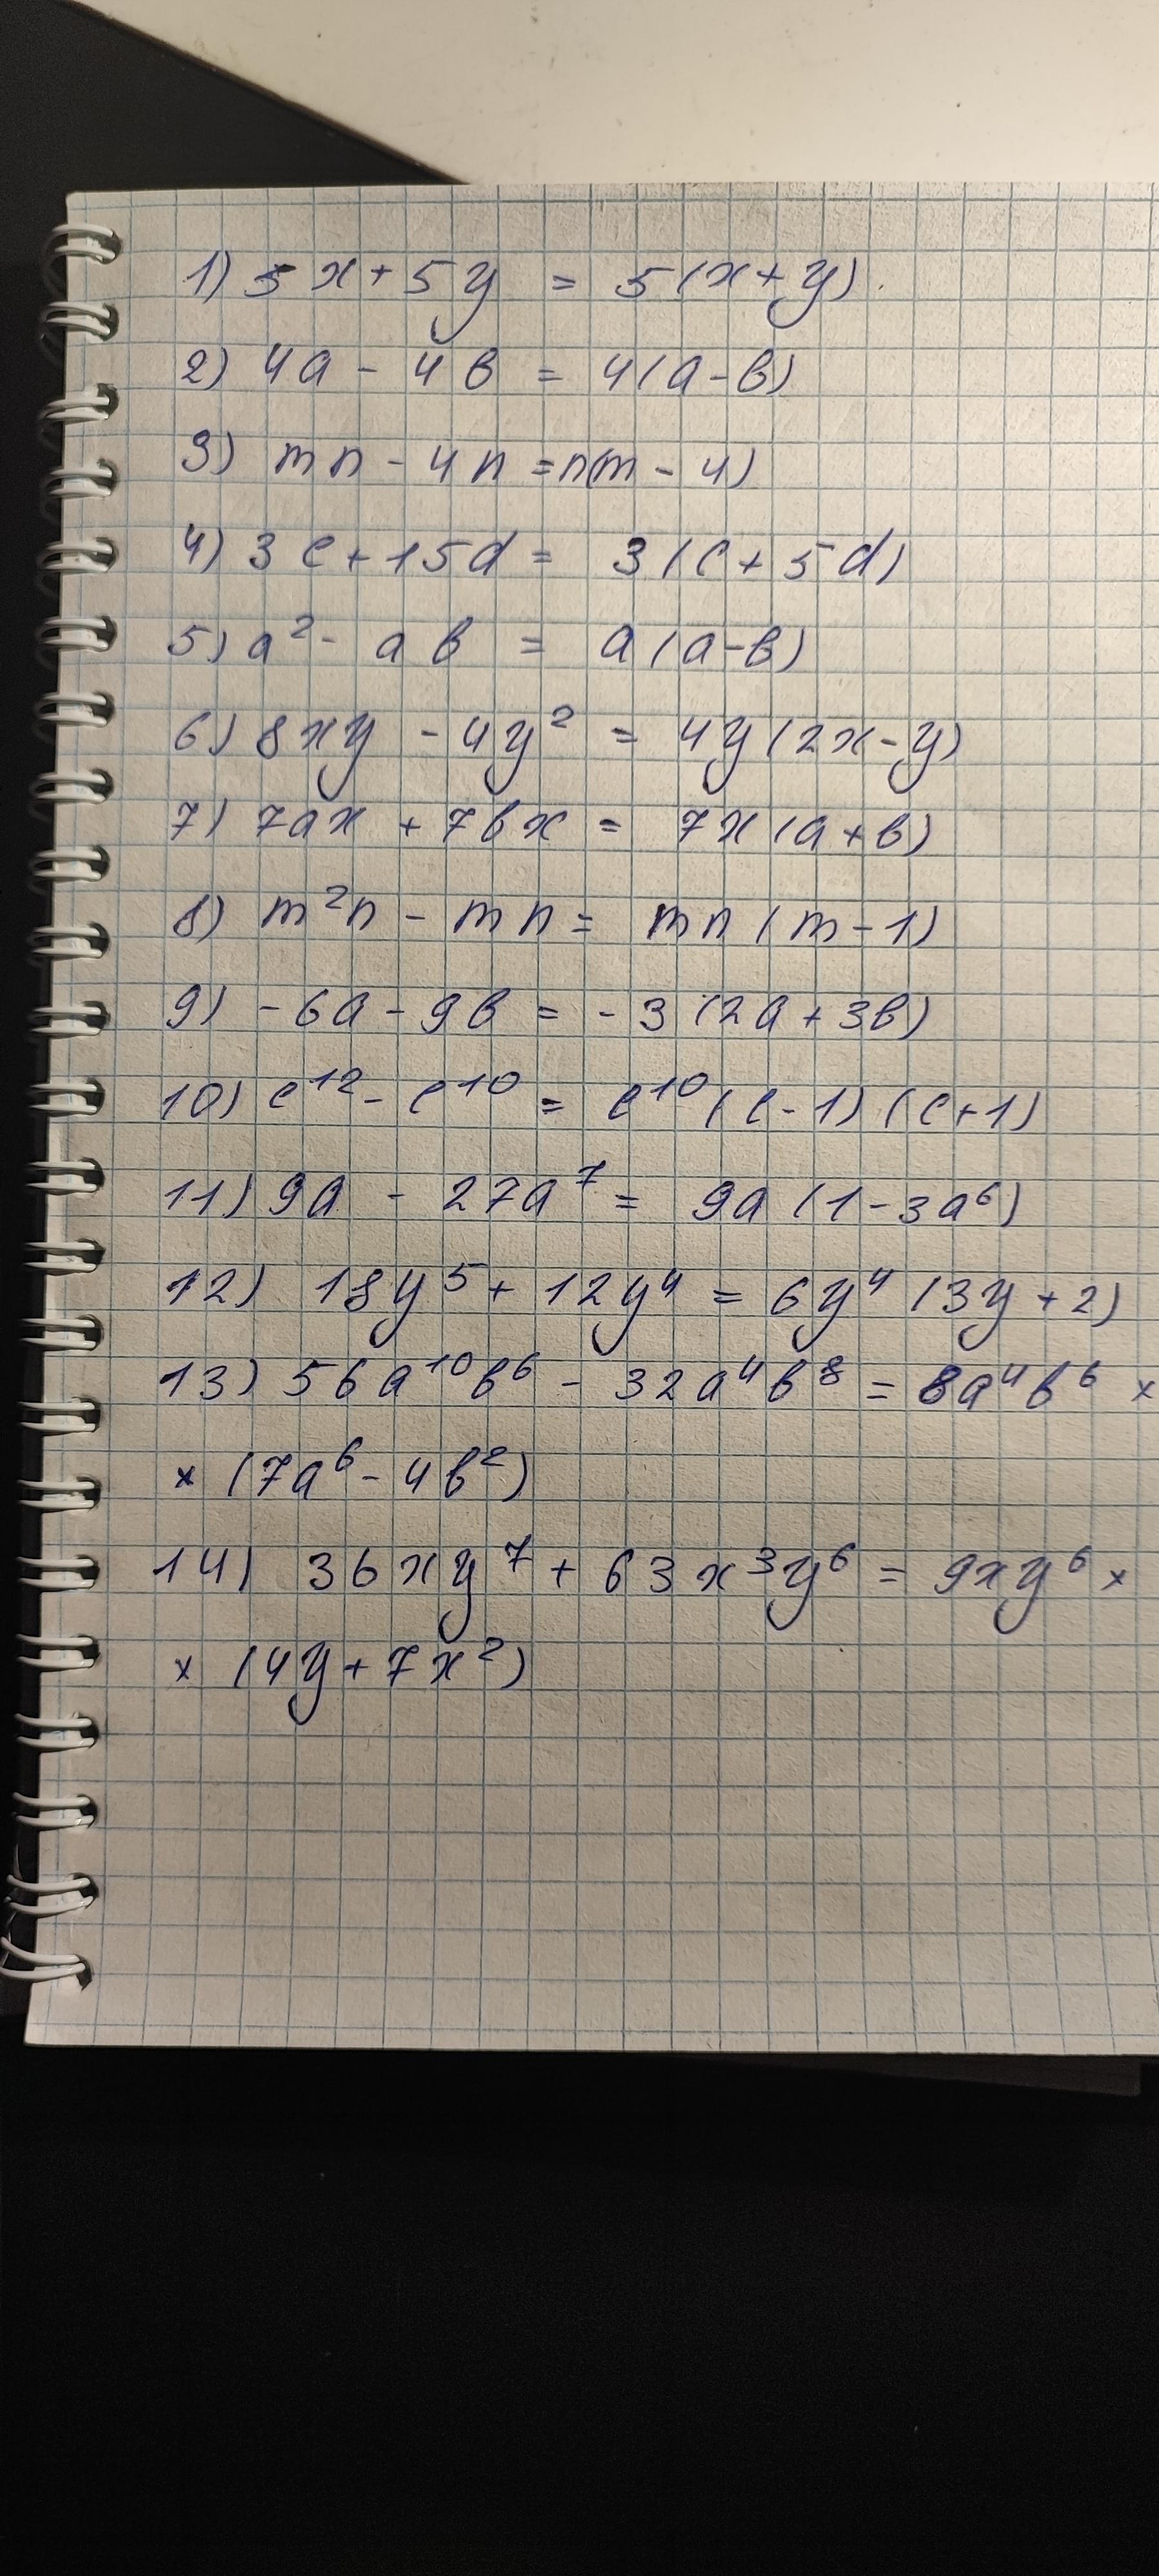 1) 5x + 5y = 5(x+y).
2) 4a - 4b = 4(a-b)
3) mn - 4n = n(m - 4)
4) 3c + 15d = 3(c + 5d)
5) a² - ab = a(a-b)
6) 8xy - 4y² = 4y(2x-y)
7) 7ax + 7bx = 7x(a+b)
8) m²n - mn = mn(m-1)
9) -6a - 9b = -3(2a+3b)
10) c¹² - c¹⁰ = c¹⁰(c-1)(c+1)
11) 9a - 27a⁷ = 9a(1-3a⁶)
12) 18y⁵ + 12y⁴ = 6y⁴(3y+2)
13) 56a¹⁰b⁶ - 32a⁴b⁸ = 8a⁴b⁶ ×
× (7a⁶ - 4b²)
14) 36xy⁷ + 63x³y⁶ = 9xy⁶ ×
× (4y + 7x²)